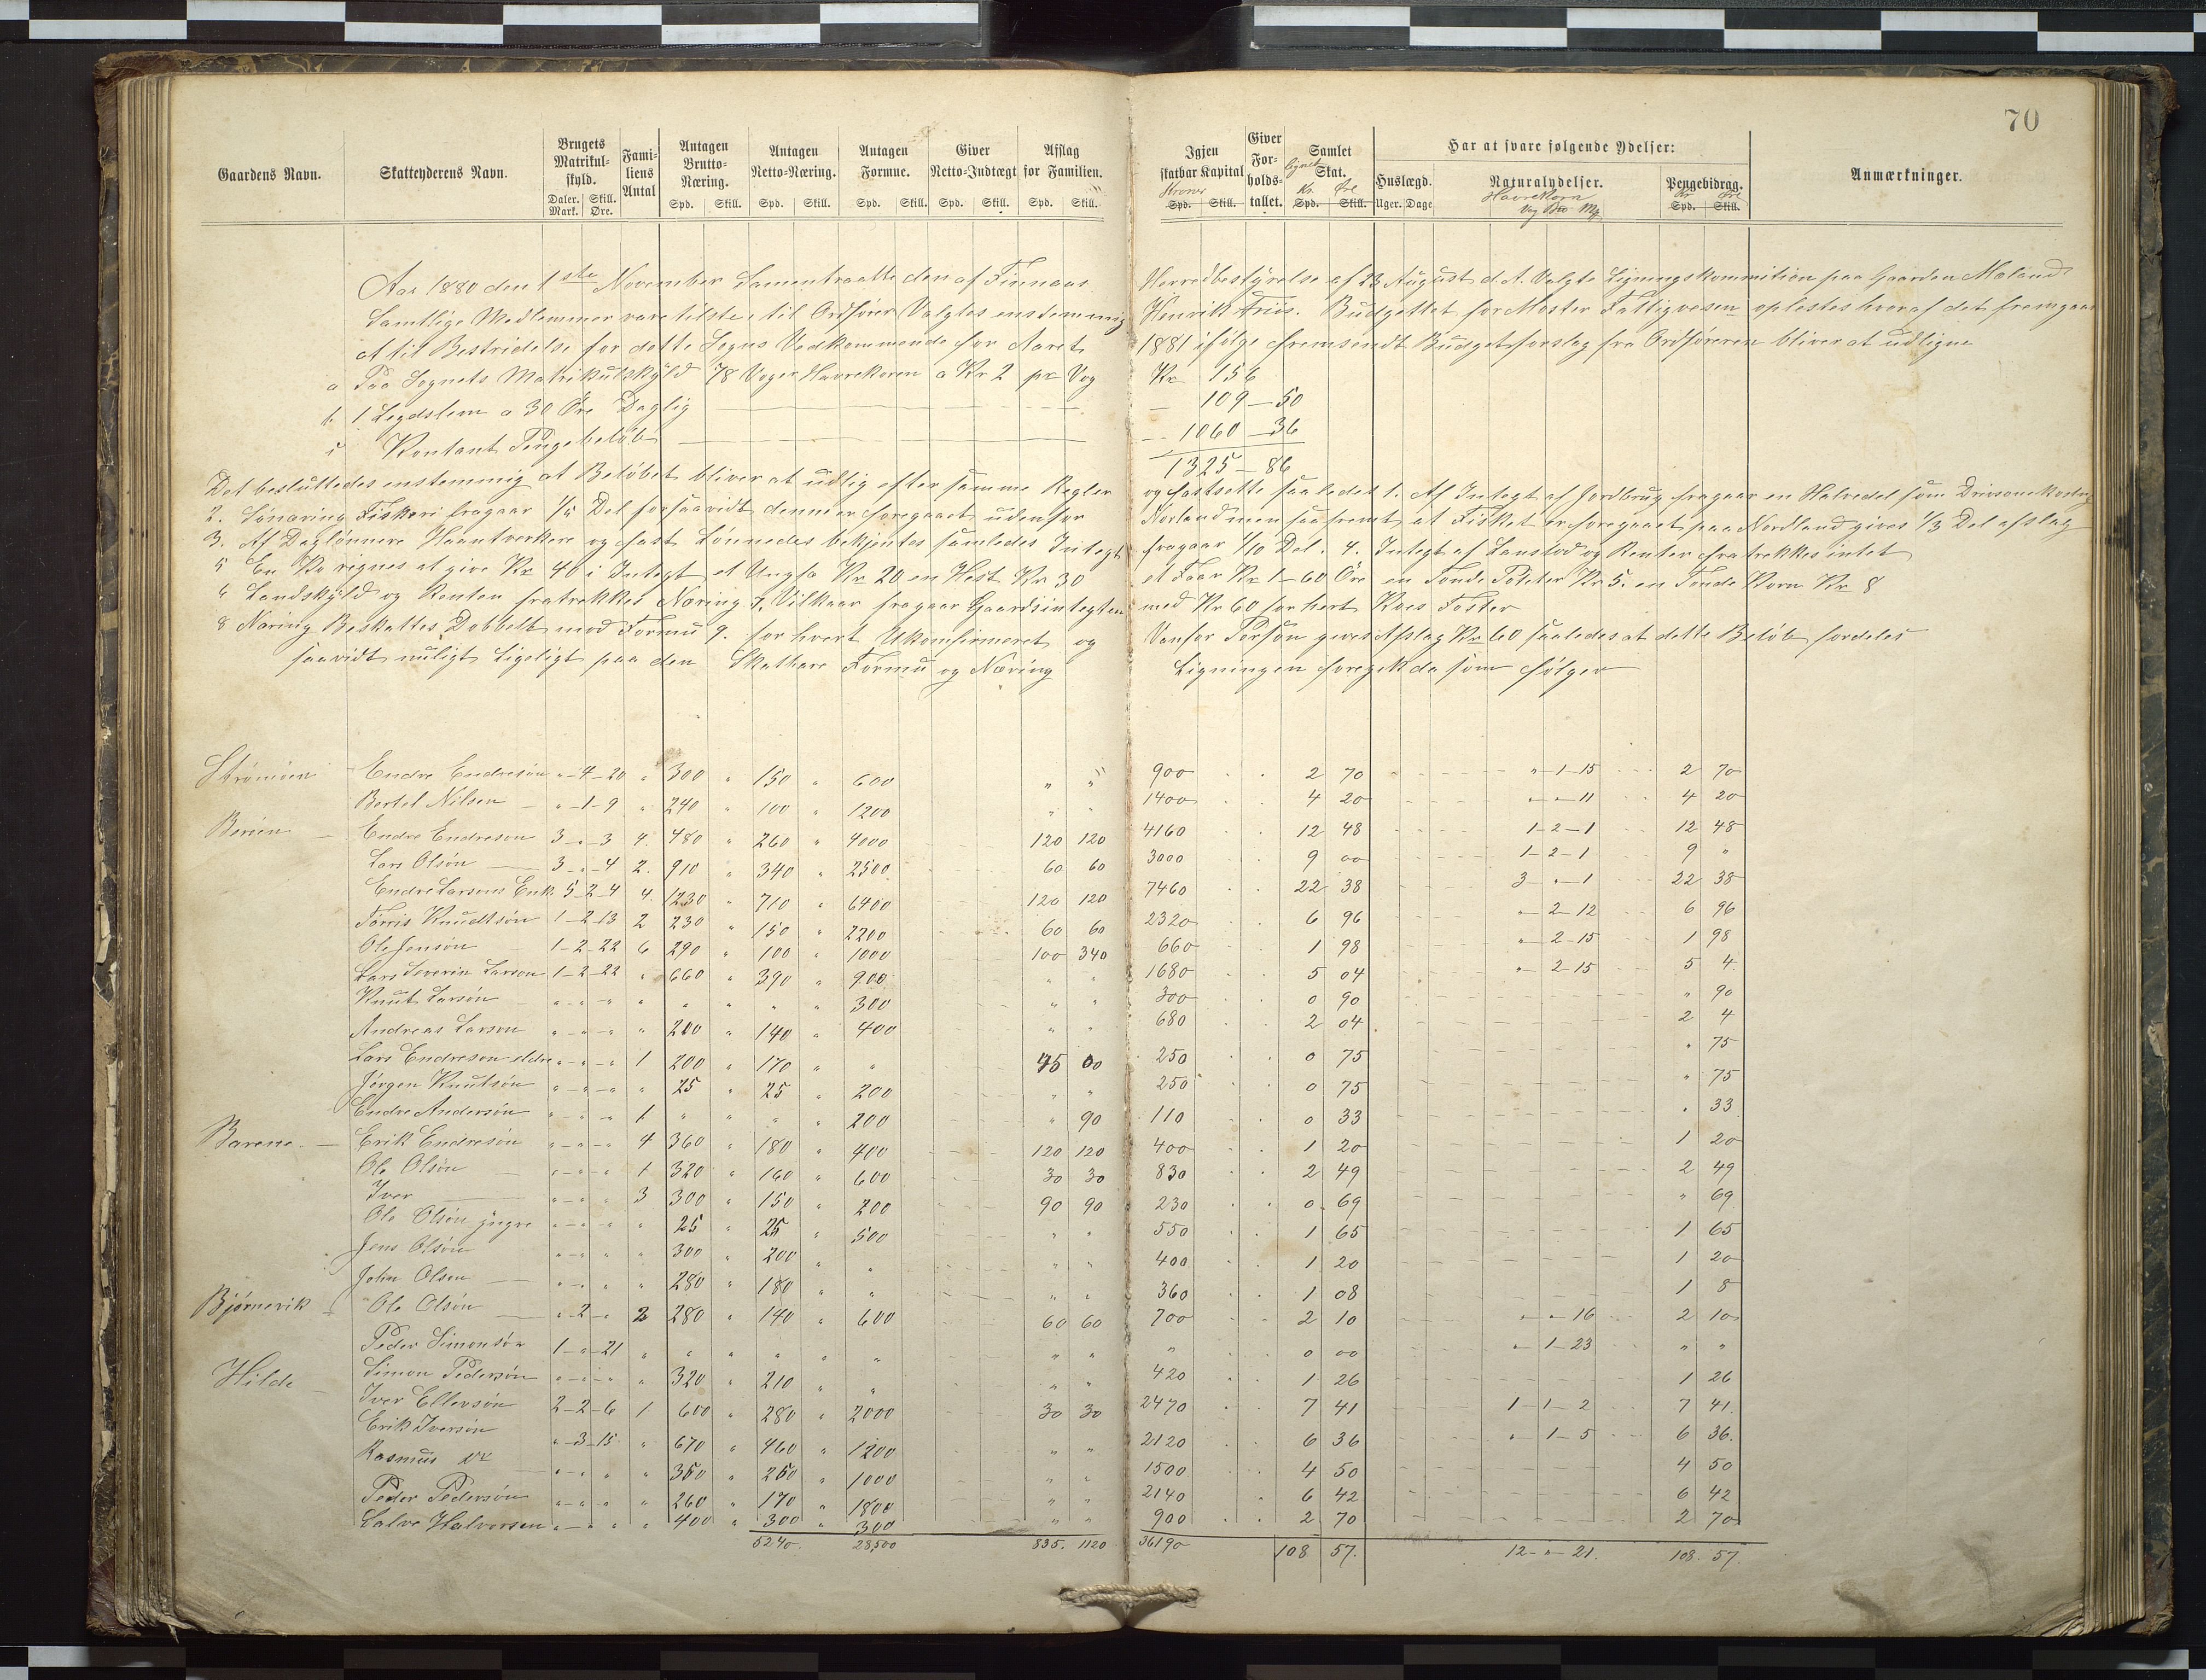 70
Gaardens Navn. Skatteyderens Navn. Brugets Matrikul-skyld. Fami-liens Antal Antagen Brutto-Næring. Antagen Netto-Næring. Antagen Formue. Giver Netto-Indtægt Afslag for Familien. Igjen skatbar Kapital Giver For-holds-tallet. lignet Samlet Skat. Har at svare følgende Ydelser: Anmærkninger.
Huslægd. Naturalydelser. Pengebidrag.
Daler. Skill. Mark. Øre. Spd. Skill. Spd. Skill. Spd. Skill. Spd. Skill. Spd. Skill. Kroner Spd. Skill. Kr. Øre Spd. Skill. Uger. Dage Havrekorn Vog Mg Kr Øre Spd. Skill.
Aar 1880 den 1ste November Sammentraatte den af Finnaas Herredbestyrelse af 23 August d. A. Valgte Ligningskommition paa Gaarden Mæland
Samtlige Medlemmer vare tilste, til Ordfører Valgtes enstemmig Henrik Friis. Budgettet for Moster Fattigvesen oplestes hvoraf det fremgaar
at til Bestridelse for dette Sogns Vedkommende for Aaret 1881 ifølge fremsendt Budgetforslag fra Ordføreren bliver at udligne
a Paa Sognets Matrikulskyld 78 Voger Havrekoren a Kr 2 pr Vog Kr 156
b. 1 Legdslem a 30 Øre Daglig — 109 — 50
c Kontant Pengebeløb — 1060 — 36
1325 — 86
Det besluttedes enstemmig at Beløbet bliver at udlig efter samme Regler og fastsette saaledes 1. Af Integt af Jordbrug fragaar en Halvedel som
2. Fiskeri fragaar 1/5 Del forsaavidt denne er foregaaet udenfor Norland men saa fremt at Fisket er foregaaet paa Nordland gives 1/3 Del afslag
3. Af Daglønnere Haantverkere og fast Lønnedes bekjentes samledes Integt fragaar 1/10 Del. 4. Integt af Lanstod og Renter fratrekkes intet
5 En Ko regnes at give Kr 40 i Integt et Ungfæ Kr. 20 en Hest Kr 30 et Faar Kr 1-60 Øre en Tønde Poteter Kr 5. en Tønde Korn Kr 8
6 Landskyld og Renter fratrekkes Næring 7. Vilkaar fragaar Gaardsintegten med Kr 60 for hvert Koes Foster
8 Næring Beskattes Dobbelt mod Formu 9. for hvert Ukonfirmeret og Vanfør Person gives Afslag Kr 60 saaledes at dette Beløb fordeles
saavidt muligt Ligeligt paa den Skatbare Formu og Næring Ligningen foregik da som følger
Strømøen Endre Endresøn " - 4 - 20 " 300 " 150 " 600 " " 900 2 70 " - 1 - 15 2 70
Bertel Nilsen " - 1 - 9 " 240 " 100 " 1200 " " 1400 4 20 " - " - 11 4 20
Børøen Endre Endreson 3 - " - 3 4. 480 " 260 " 4000 120 120 4160 12 48 1 - 2 - 1 12 48
Lars Olsøn 3 - " - 4 2. 910 " 340 " 2500 60 60 3000 9 00 1 - 2 - 1 9 "
Endre Larsens Enk 5 - 2 - 4 4. 1230 " 710 " 6400 120 120 7460 22 38 3 - " - 1 22 38
Tørris Knudtsøn 1 - 2 - 13 2 230 " 150 " 2200 60 60 2320 6 96 " - 2 - 12 6 96
Ole Jensøn 1 - 2 - 22 6 290 " 100 " 1000 100 340 660 1 98 " - 2 - 15 1 98
Lars Severin Larson 1 - 2 - 22 " 660 " 390 " 900 " " 1680 5 04 " - 2 - 15 5 4
Knut Larsøn " - " - " " " " " " 300 " " 300 0 90 " 90
Andreas Larson " - " - " " 200 " 140 " 400 " " 680 2 04 2 4
Lars Endreson eldre " - " - " 1 200 " 170 " " 45 00 250 0 75 " 75
Jørgen Knutsøn " - " - " " 25 " 25 " 200 " " 250 0 75 " 75
Endre Andersøn " - " - " 1 " " " " 200 " 90 110 0 33 " 33
Barane Erik Endresøn " - " - " 4 360 " 180 " 400 120 120 400 1 20 1 20
Ole Olsøn " - " - " 1 320 " 160 " 600 30 30 830 2 49 2 49
Iver " - " - " 3 300 " 150 " 200 90 90 230 0 69 " 69
Ole Olsøn yngre " - " - " " 25 " 25 " 500 " " 550 1 65 1 65
Jens Olsøn " - " - " " 300 " 200 " " " " 400 1 20 1 20
John Olsen " - " - " " 280 " 180 " " " " 360 1 08 1 8
Bjørnevik Ole Olsøn " - 2 - " 2 280 " 140 " 600 60 60 700 2 10 " - " - 16 2 10
Peder Simonsøn 1 - " - 21 " " " " " " " " " 0 00 " - 1 - 23 " "
Hilde Simon Pedersøn " - " - " " 320 " 210 " " " " 420 1 26 1 26
Iver Ellevsøn 2 - 2 - 6 1 600 " 280 " 2000 30 30 2470 7 41 1 - 1 - 2 7 41
Erik Iversøn " - 3 - 15 " 670 " 460 " 1200 " " 2120 6 36 " - 1 - 5 6 36.
Rasmus " - " - " " 350 " 250 " 1000 " " 1500 4 50 4 50
Peder Pedersøn " - " - " " 260 " 170 " 1800 " " 2140 6 42 6 42
Salve Halvorsen " - " - " " 400 " 300 " 300 " " 900 2 70 2 70
5240 28,500 835. 1120 36190 108 57. 12 - " - 21. 108. 57.